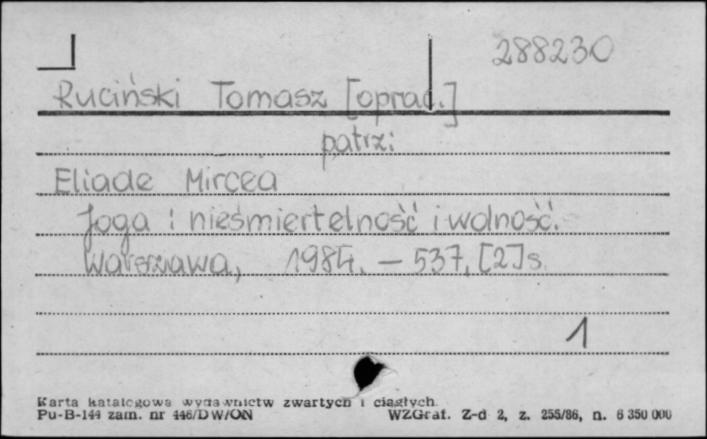 288230
Ruciński Tomasz [oprac.]
patrz:
Eliade Mircea
Joga : nieśmiertelność i wolność.
Warszawa, 1984. – 537, [2] s.
1
Karta katalogowa wydawnictw zwartych i ciągłych
Pu-B-144 zam. nr 446/DW/ON WZGraf. Z-d 2, z. 255/86, n. 6 350 000